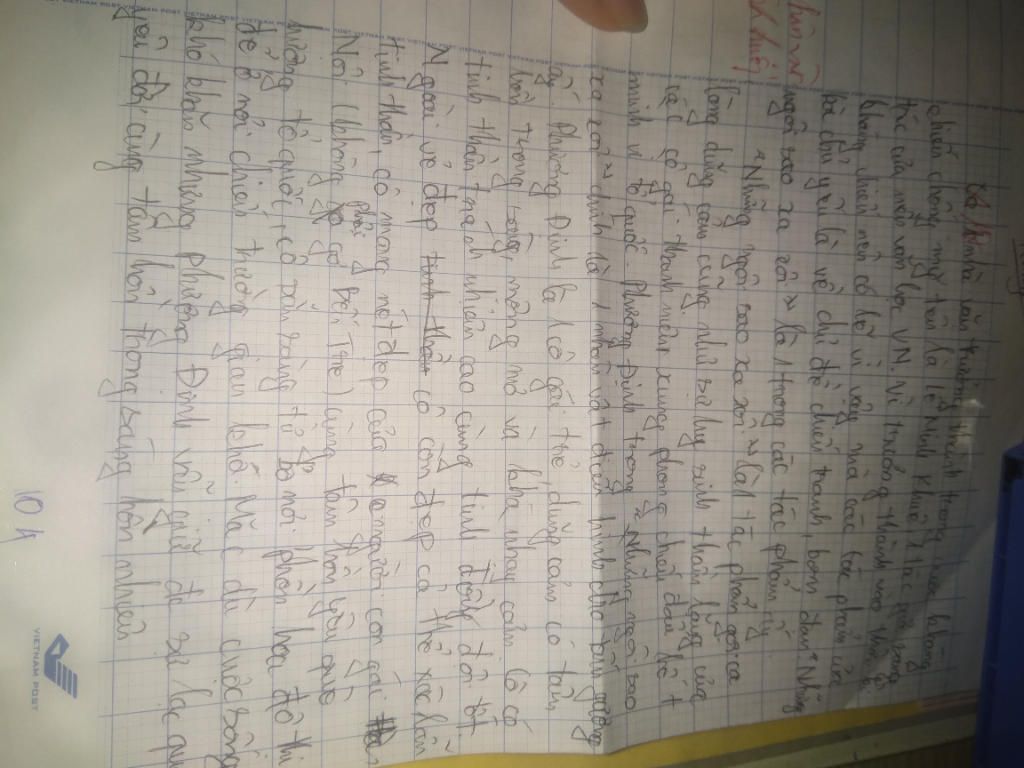 nhà văn trưởng thành trong cuộc kháng
chiến chống mỹ tên là Lê Minh Khuê 1 tác giả xuất
sắc của nền văn học VN. Vì trưởng thành vào thời
kháng chiến nên cô lẽ vì vậy mà các tác phẩm của
bà chủ yếu là về chủ đề chiến tranh, bom đạn "Những
ngôi sao xa xôi" là 1 trong các tác phẩm ấy
"Những ngôi sao xa xôi" là 1 tác phẩm ngợi ca
lòng dũng cảm cũng như sự hy sinh thầm lặng của
các cô gái thanh niên xung phong chiến đấu hết
mình vì tổ quốc Phương Định trong "Những ngôi sao
xa xôi" chính là 1 nhân vật điển hình cho tấm gương
ấy. Phương Định là 1 cô gái trẻ, dũng cảm có tâm
hồn trong sáng, mộng mơ và khá nhạy cảm, cô có
tinh thần trách nhiệm cao cùng tình đồng đội tốt
Ngoài vẻ đẹp tinh thần cô còn đẹp cả thể xác lẫn
tinh thần, cô mang nét đẹp của người con gái
Nội (không phải gà Bến Tre) cùng tâm hồn yêu quê
hương tổ quốc, cô sẵn sàng từ bỏ nơi phồn hoa đô thị
để ở nơi chiến trường gian khổ. Mặc dù cuộc sống
khó khăn nhưng phương Định vẫn giữ được sự lạc quan
yêu đời cùng tâm hồn trong sáng hồn nhiên
10A
VIETNAM POST